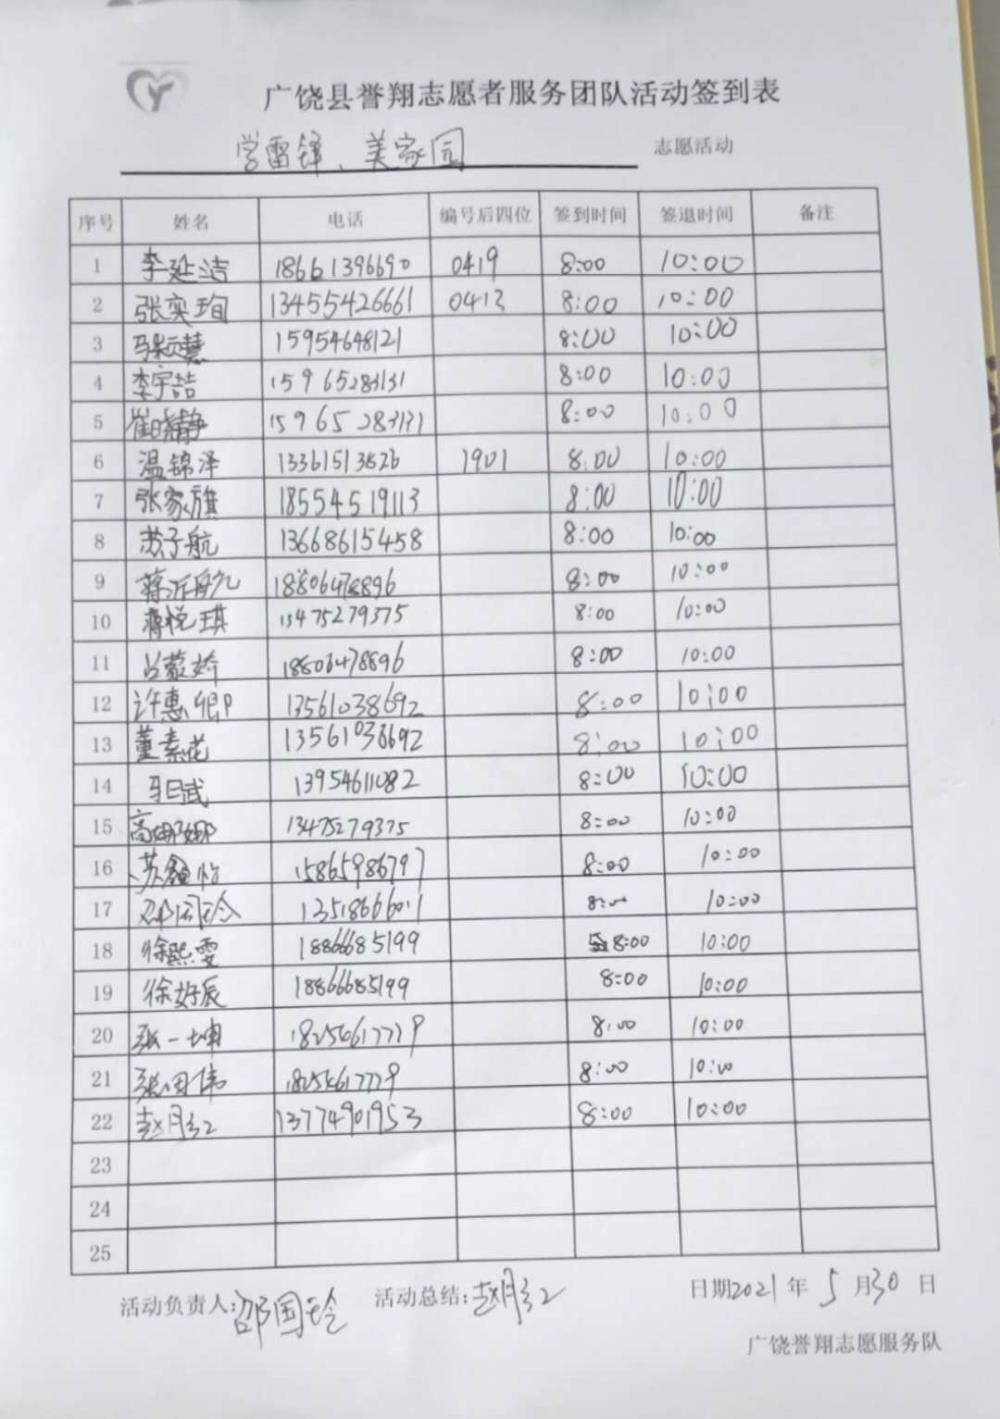 广饶县誉翔志愿者服务团队活动签到表
学雷锋、美家园 志愿活动
序号 姓名 电话 编号后四位 签到时间 签退时间 备注
1 李延洁 18661396690 0419 8:00 10:00
2 张奕珣 13455426661 0413 8:00 10:00
3 马颖慧 15954648121 8:00 10:00
4 李宇喆 15965283131 8:00 10:00
5 崔晓静 15965283131 8:00 10:00
6 温锦泽 13361513826 1901 8:00 10:00
7 张家旗 18554519113 8:00 10:00
8 苏子航 13668615458 8:00 10:00
9 蒋沂航 18806478896 8:00 10:00
10 蒋悦琪 13475279375 8:00 10:00
11 吕蒙娇 18806478896 8:00 10:00
12 许惠卿 13561038692 8:00 10:00
13 董素花 13561038692 8:00 10:00
14 13954611082 8:00 10:00
15 高娜娜 13475279375 8:00 10:00
16 苏鑫怡 15865986797 8:00 10:00
17 邵国玲 13518666011 8:00 10:00
18 徐熙雯 18866685199 8:00 10:00
19 徐好辰 18866685199 8:00 10:00
20 张一坤 18254617779 8:00 10:00
21 张国伟 18254617779 8:00 10:00
22 赵月红 13774901953 8:00 10:00
23
24
25
活动负责人:邵国玲 活动总结:赵月红 日期2021年5月30日
广饶誉翔志愿服务队